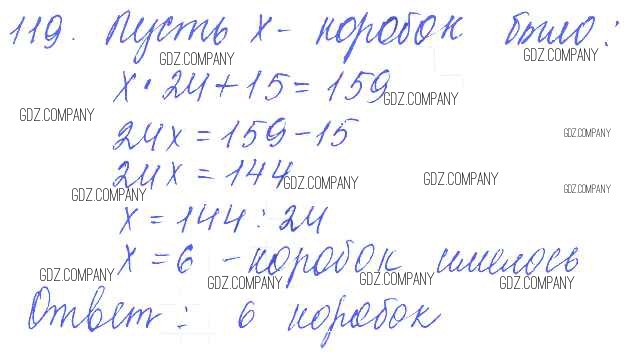 119. Пусть x - коробок было:
GDZ.COMPANY GDZ.COMPANY
x · 24 + 15 = 159
GDZ.COMPANY GDZ.COMPANY
24x = 159 - 15
GDZ.COMPANY
24x = 144
GDZ.COMPANY GDZ.COMPANY GDZ.COMPANY GDZ.COMPANY
x = 144 : 24
x = 6 - коробок имелось
GDZ.COMPANY GDZ.COMPANY GDZ.COMPANY GDZ.COMPANY
Ответ: 6 коробок